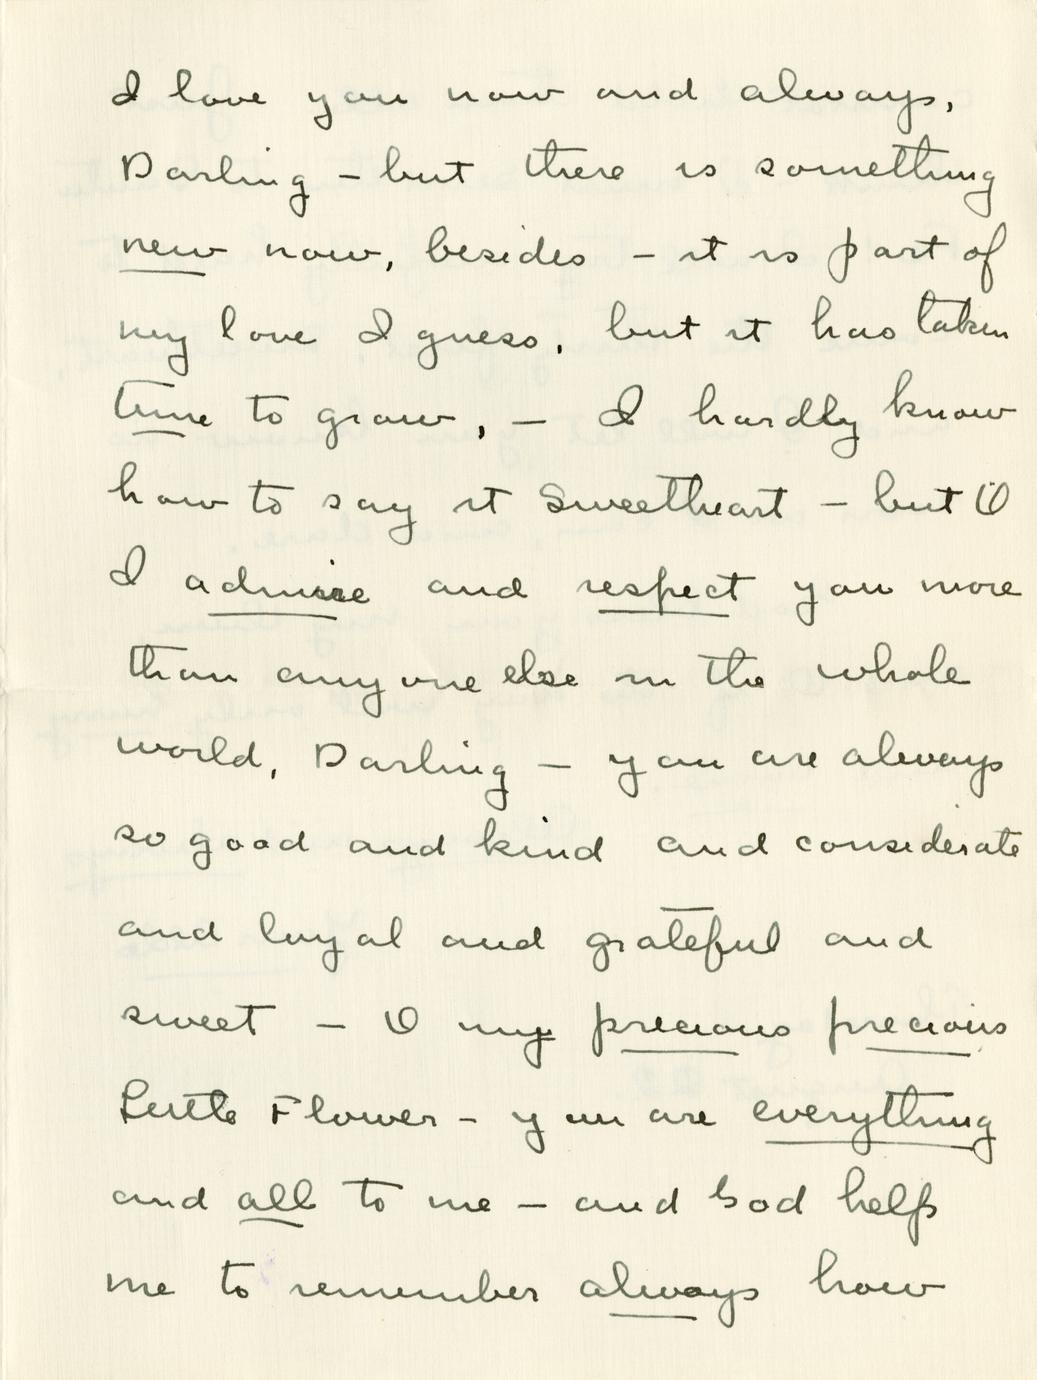 I love you now and always,
Darling – but there is something
new now, besides – it is part of
my love I guess, but it has taken
time to grow, – I hardly know
how to say it Sweetheart – but O
I admire and respect you more
than anyone else in the whole
world, Darling – you are always
so good and kind and considerate
and loyal and grateful and
sweet – O my precious precious
Little Flower – you are everything
and all to me – and God help
me to remember always how